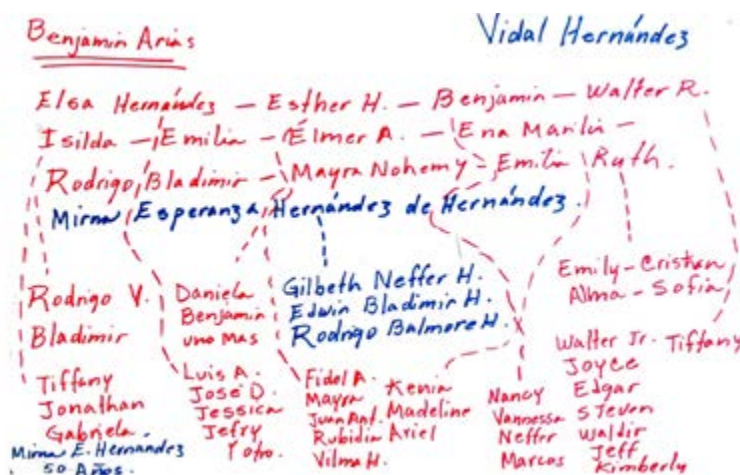 Benjamin Arias
Vidal Hernández
Elsa Hernández – Esther H. – Benjamin – Walter R.
Isilda – Emilia – Élmer A. – Ena Marilin –
Rodrigo, Bladimir – Mayra Nohemy – Emilia Ruth.
Mirna Esperanza Hernández de Hernández.
Rodrigo V.
Bladimir
Daniela
Benjamin
uno mas
Gilbeth Neffer H.
Edwin Bladimir H.
Rodrigo Balmore H.
Emily – Cristian
Alma – Sofia
Tiffany
Jonathan
Gabriela
Mirna E. Hernández
50 Años.
Luis A.
José D.
Jessica
Jefry
Y otro.
Fidel A.
Mayra
Juan Ant.
Rubidia
Vilma H.
Kenia
Madeline
Ariel
Nancy
Vannessa
Neffer
Marcos
Walter Jr. Tiffany
Joyce
Edgar
Steven
Waldir
Jeff
Kimberly